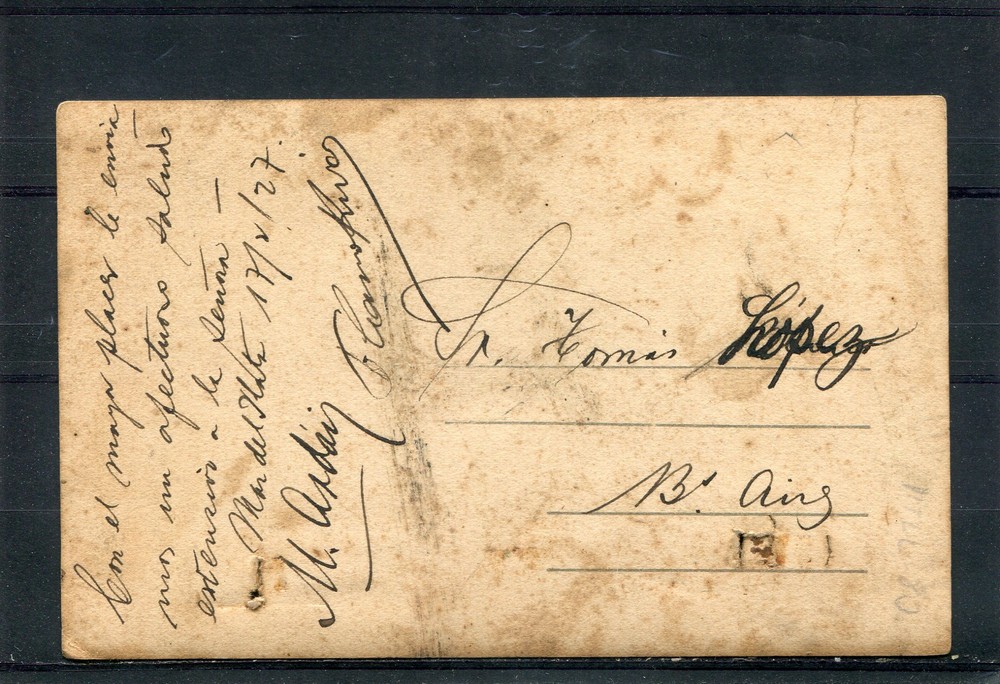 Con el mayor placer le envia
mos un afectuoso saludo
extensivo a la señora —
Mar del Plata 17/2/27.
M. Ardáiz
Sr. Tomás López
Bs Aires